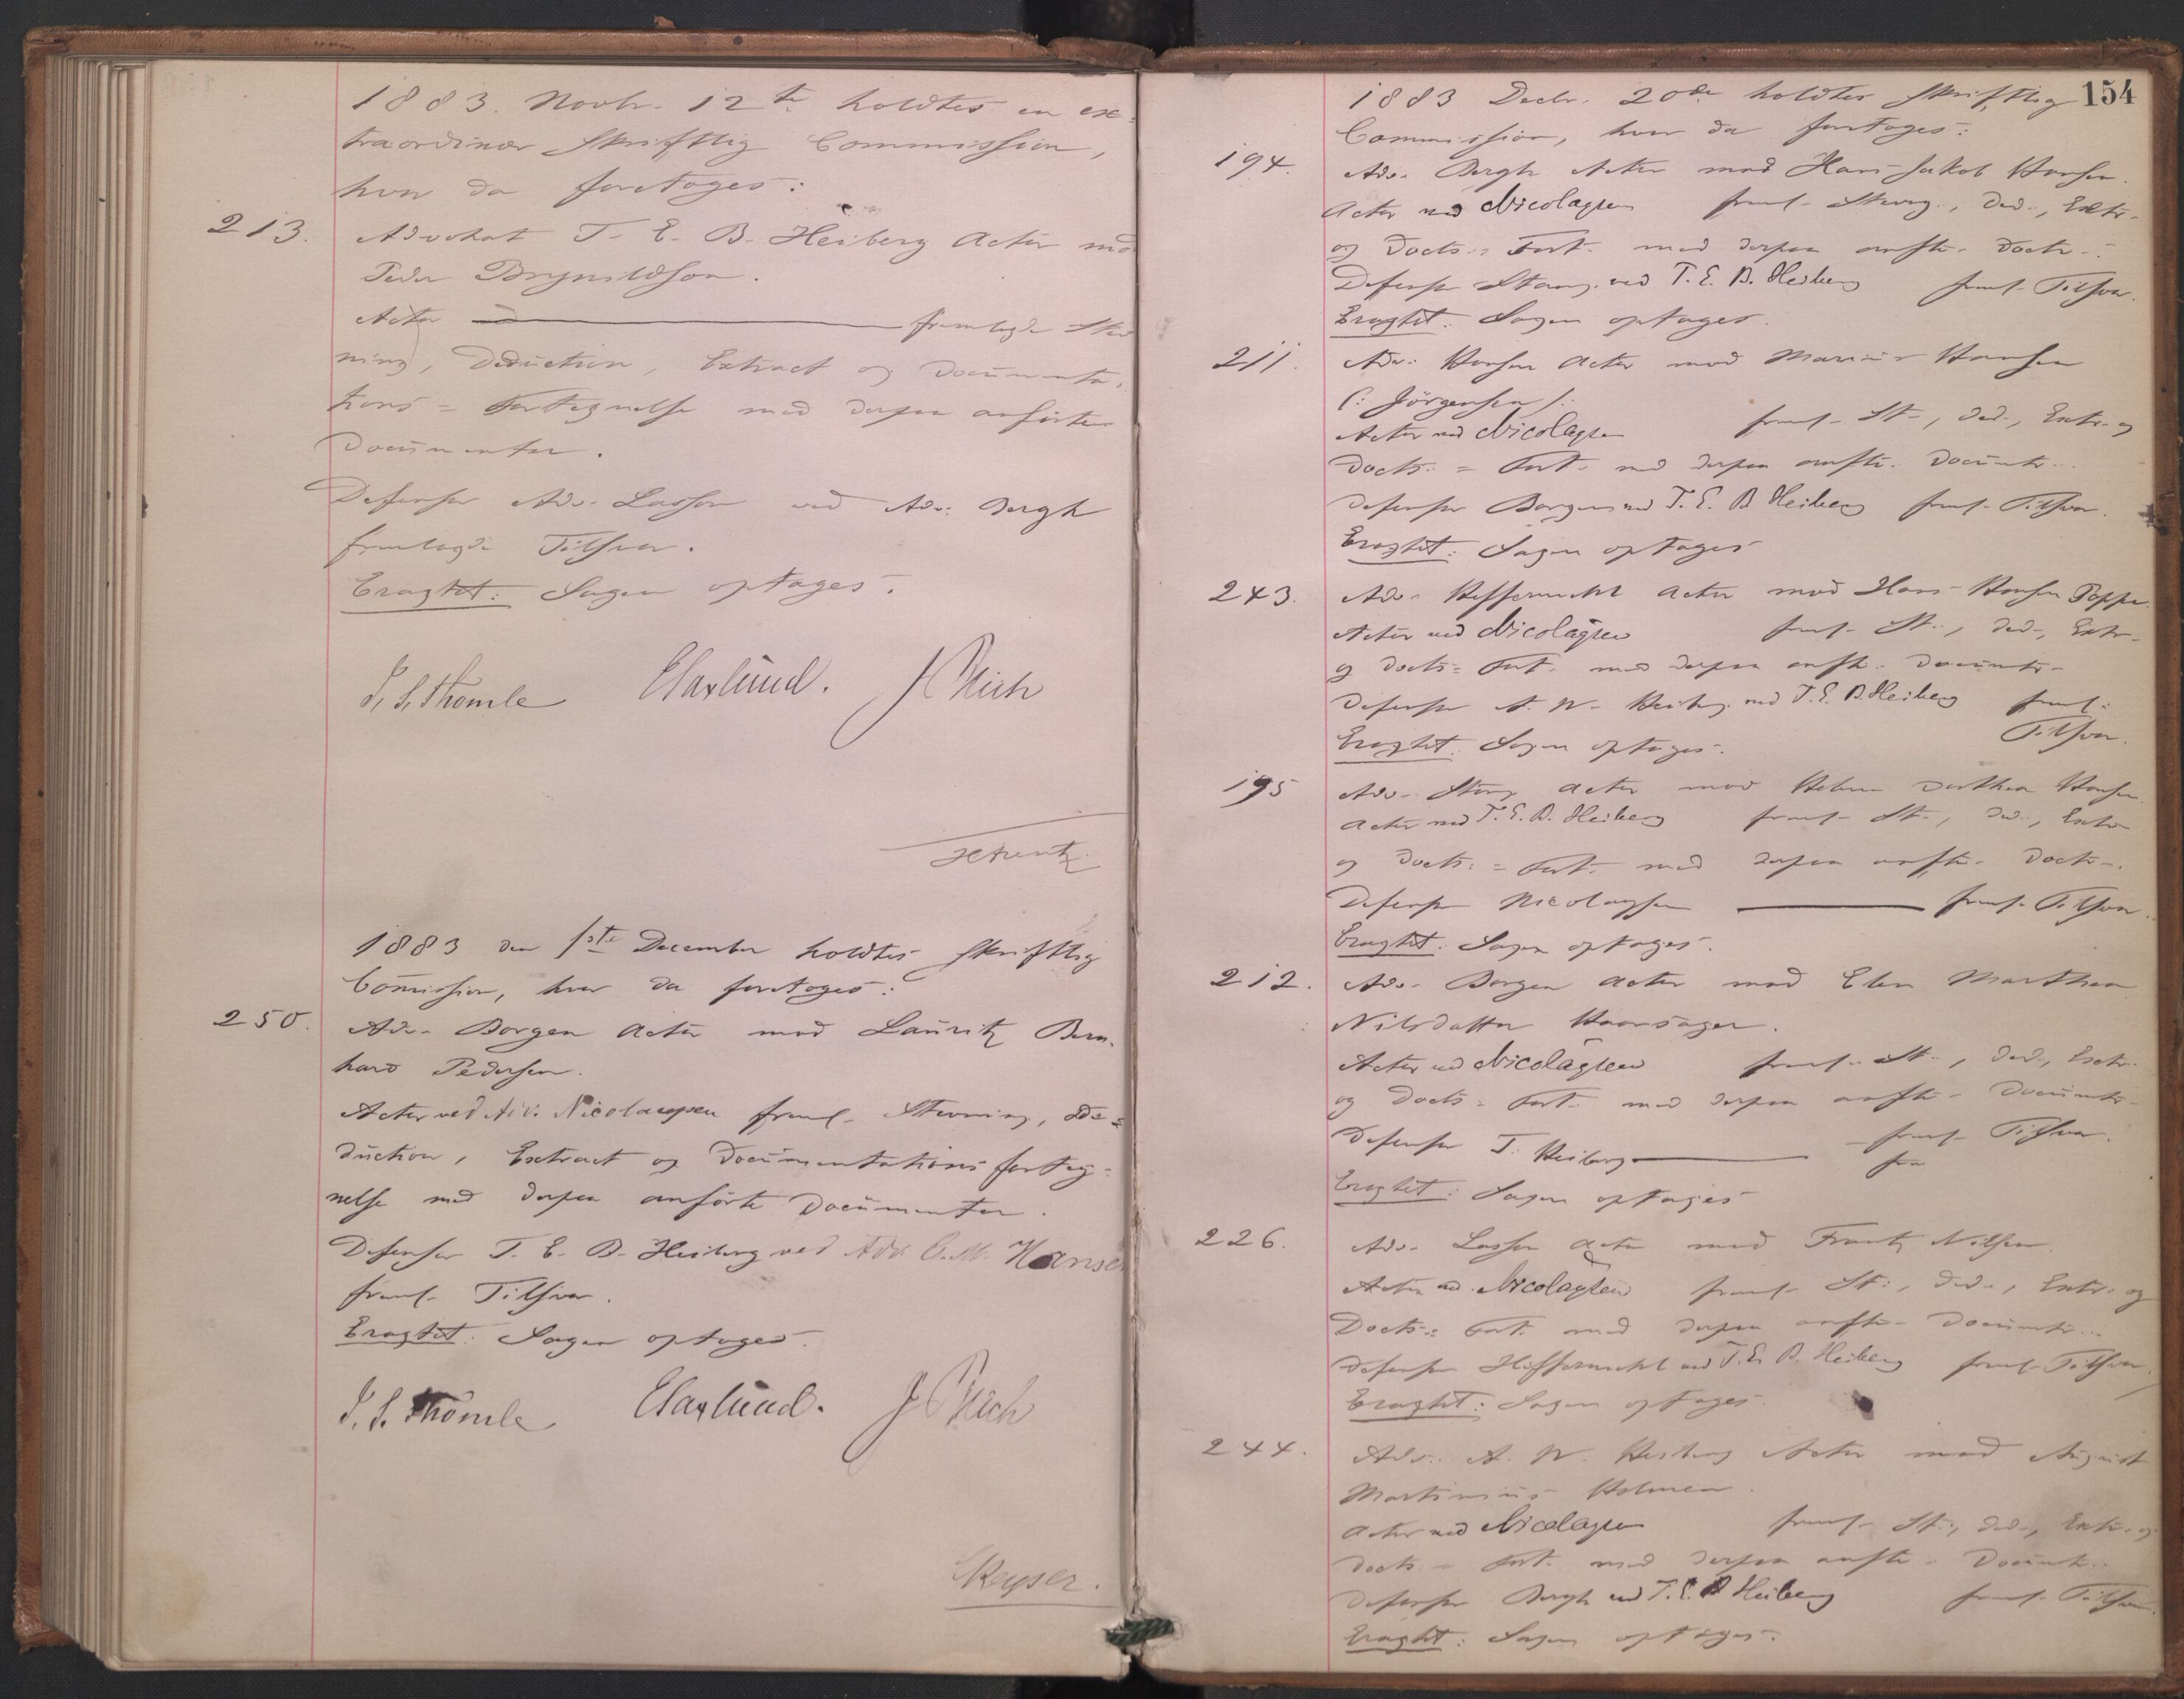 1883. Novbr. 12te holdtes en ex=
traordinær skriftlig Commission,
hvor da foretoges:
213.
Advokat T. E. B. Heiberg Actor mod
Peder Brynildson.
Actor fremlagde Stæv
ning, Deduction, Extract og Documenta=
tions=Fortegnelse med derpaa anførte
Documenter.
Defensor Adv. Lasson ved Adv. Bergh
fremlagde Tilsvar.
Eragtet: Sagen optages.
J. S. Thomle
J Reich
1883 den 1ste December holdtes skriftlig
Commission, hvor da foretoges:
250.
Adv. Borgen Actor mod Lauritz Bern=
hard Pedersen.
Actor ved Adv. Nicolaysen freml. Stevning, De=
duction, Extract og Documentationsforteg=
nelse med derpaa anførte Documenter.
Defensor T. E. B. Heiberg ved Adv. C. M. Hansen
freml. Tilsvar.
Eragtet: Sagen optages.
J. S. Thomle
J Reich
Keyser.
154
1883 Decbr. 20de holdtes skriftlig
Commission, hvor da foretoges:
194.
Adv. Bergh Actor mod Hans Jakob Hansen.
Actor ved Nicolaysen freml. Stevng., Ded., Extr.
og Docts.=Fort. med derpaa anfte. Doctr.
Defensor Stang ved T. E. B. Heiberg freml. Tilsvar.
Eragtet: Sagen optages.
211.
Adv. Hansen Actor mod Marius Hansen
(: Jörgensen :)
Actor ved Nicolaysen freml. St., Ded., Extr. og
Docts.=Fort. med derpaa anfte. Documtr.
Defensor Borgen ved T. E. B Heiberg freml. Tilsvar.
Eragtet: Sagen optages
243.
Adv. Heffermehl Actor mod Hans Hansen Poppe.
Actor ved Nicolaysen freml. St., Ded., Extr.
og Docts.=Fort. med derpaa anfte. Documtr.
Defensor A. W. Heiberg ved T. E. B. Heiberg freml.
Tilsvar.
Eragtet: Sagen optages.
195
Adv. Stang Actor mod Helene Dorthea Hansen
Actor ved T. E. B. Heiberg freml. St., Ded., Extr.
og Docts.=Fort. med derpaa anfte. Doctr.
Defensor Nicolaysen freml. Tilsvar.
Eragtet: Sagen optages.
212.
Adv. Borgen Actor mod Elen Marthea
Nilsdatter Haarsager.
Actor ved Nicolaysen freml. St., Ded., Extr.
og Docts.=Fort. med derpaa anfte. Documtr.
Defensor T. Heiberg freml. Tilsvar.
Eragtet: Sagen optages
226.
Adv. Lasson Actor mod Frantz Nilsen.
Actor ved Nicolaysen freml. St., Ded., Extr. og
Docts.=Fort. med derpaa anfte. Documtr.
Defensor Heffermehl ved T. E. B. Heiberg freml. Tilsvar.
Eragtet: Sagen optages.
244.
Adv. A. W. Heiberg Actor mod August
Martinius Holmen.
Actor ved Nicolaysen freml. St., Ded., Extr. og
Docts.=Fort. med derpaa anfte. Documtr.
Defensor Bergh ved T. E. B Heiberg freml. Tilsvar.
Eragtet: Sagen optages.